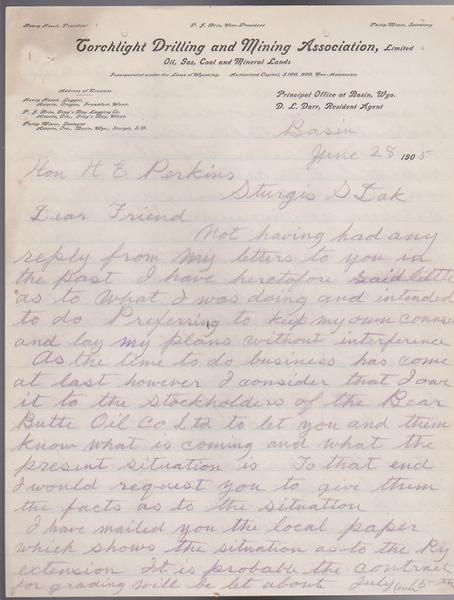 Henry Nusch, President
P. J. Brix, Vice-President
Philip Minor, Secretary
Torchlight Drilling and Mining Association, Limited
Oil, Gas, Coal and Mineral Lands
Incorporated under the Laws of Wyoming. Authorized Capital, $100,000, Non-Assessable
Address of Trustees
Principal Office at Basin, Wyo.
D. L. Darr, Resident Agent
Astoria, Ore., Basin, Wyo., Sturgis, S.D.
Basin
June 28 1905
Hon H E Perkins
Sturgis S Dak
Dear Friend
Not having had any
reply from my letters to you in
the past I have heretofore said little
as to what I was doing and intended
to do Preferring to keep my own counsel
and lay my plans without interference
As the time to do business has come
at last however I consider that I owe
it to the stockholders of the Bear
Butte Oil Co Ltd to let you and them
know what is coming and what the
present situation is To that end
I would request you to give them
the facts as to the situation
I have mailed you the local paper
which shows the situation as to the Ry
extension It is probable the contract
for grading will be let about July